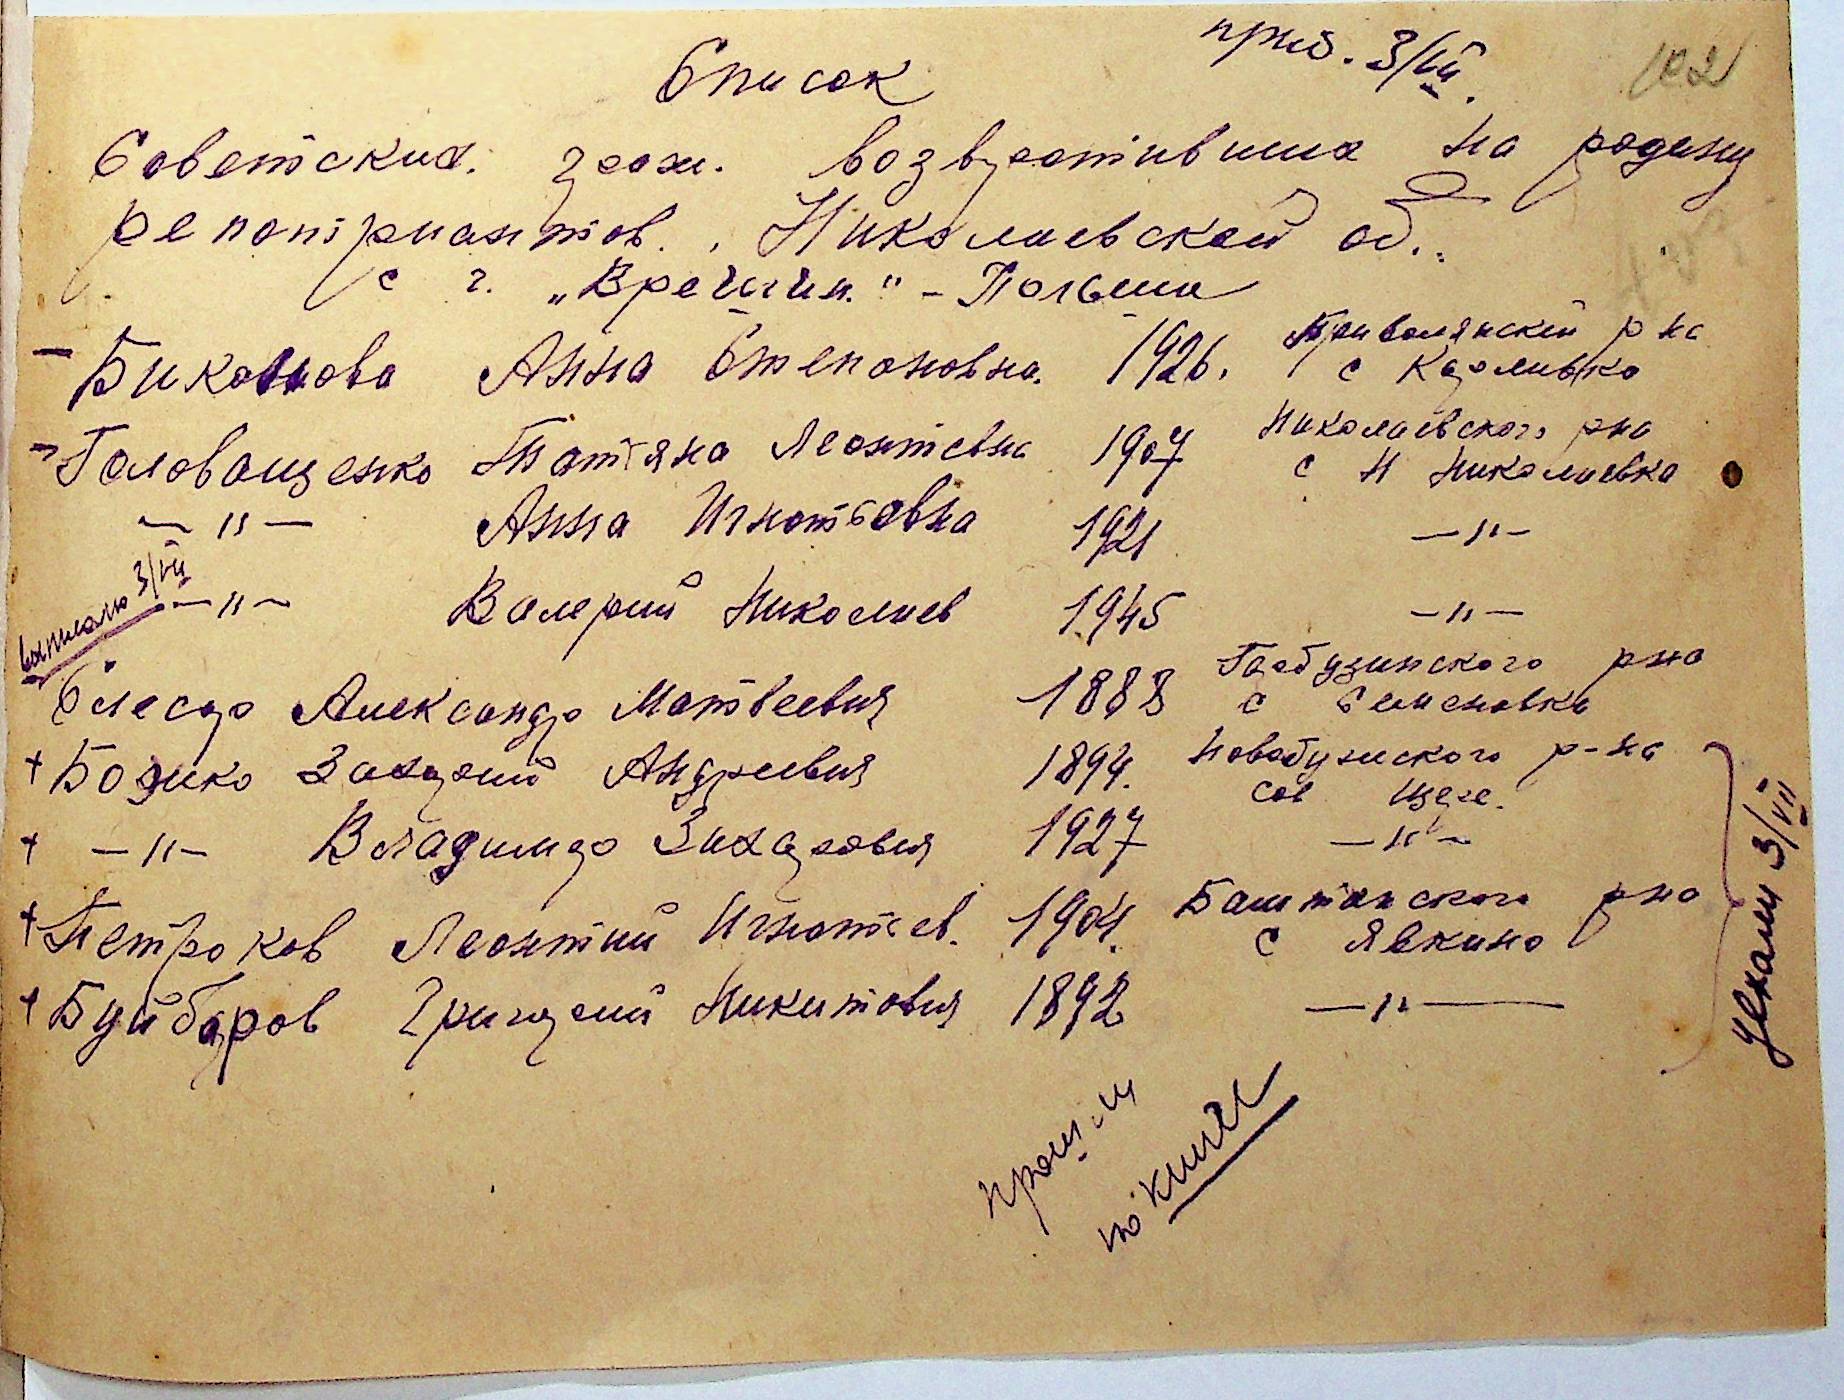 приб. 3/VII.
102
Список
Советских граж. возвратившихся на родину
репатриантов. Николаевской об.
с г. „Врейтин." - Польша
Биковцова Анна Степановна. 1926. Привольянский р на
с Кароливко
Головащенко Татяна Леонтевна 1907 Николаевского рна
с Н Николаевка
— " — Анна Игнатьевна 1921 — " —
выписано 3/VII
— " — Валерий Николаев 1945 — " —
Слесарь Александр Матвеевич 1888 Гарбузинского рна
с Семеновка
+ Бойко Захарий Андреевич 1894. Новобугиского р-на
сов
+ — " — Владимир Захарович 1927 — " —
+ Петраков Леонтий Игнатьев. 1904. Баштанского рна
с Явкино
+ Буйбаров Григорий Никитович 1892 — " —
уехали 3/VII
прошли
по книге